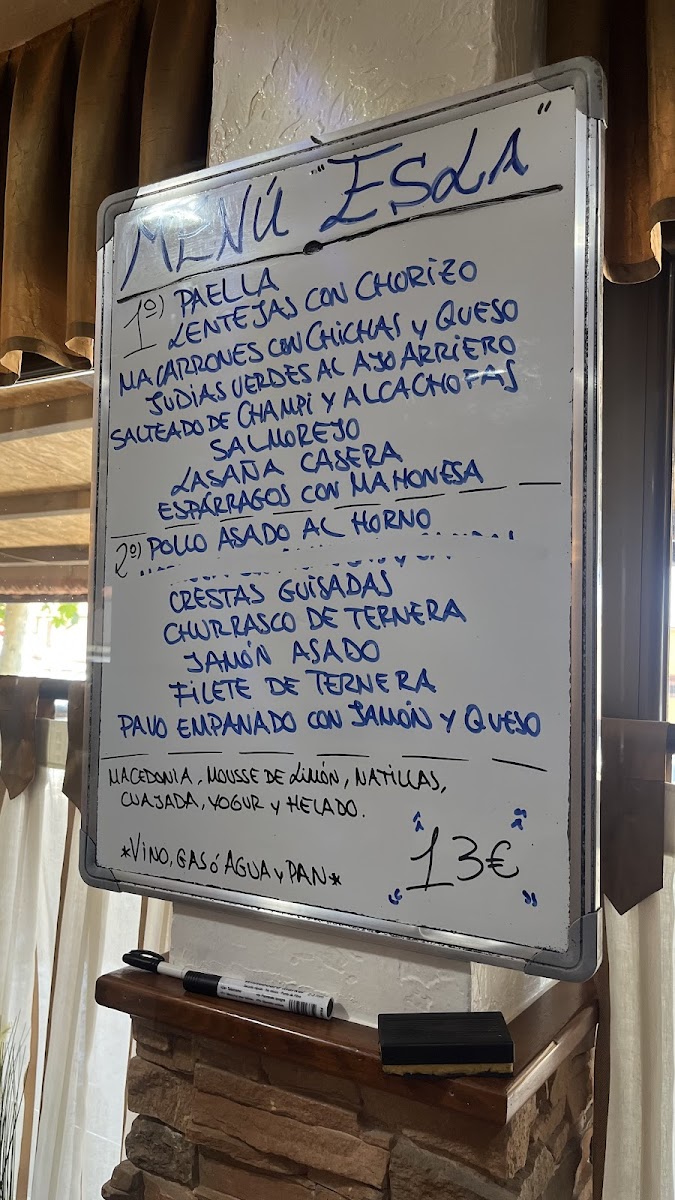 MENÚ "ESLA"
1º) PAELLA
LENTEJAS CON CHORIZO
MACARRONES CON CHICHAS y QUESO
JUDIAS VERDES AL AJO ARRIERO
SALTEADO DE CHAMPI Y ALCACHOFAS
SALMOREJO
LASAÑA CASERA
ESPÁRRAGOS CON MAHONESA
2º) POLLO ASADO AL HORNO
CRESTAS GUISADAS
CHURRASCO DE TERNERA
JAMÓN ASADO
FILETE DE TERNERA
PAVO EMPANADO CON JAMÓN Y QUESO
MACEDONIA, MOUSSE DE LIMÓN, NATILLAS,
CUAJADA, YOGUR Y HELADO.
*VINO, GAS ó AGUA y PAN*
13€